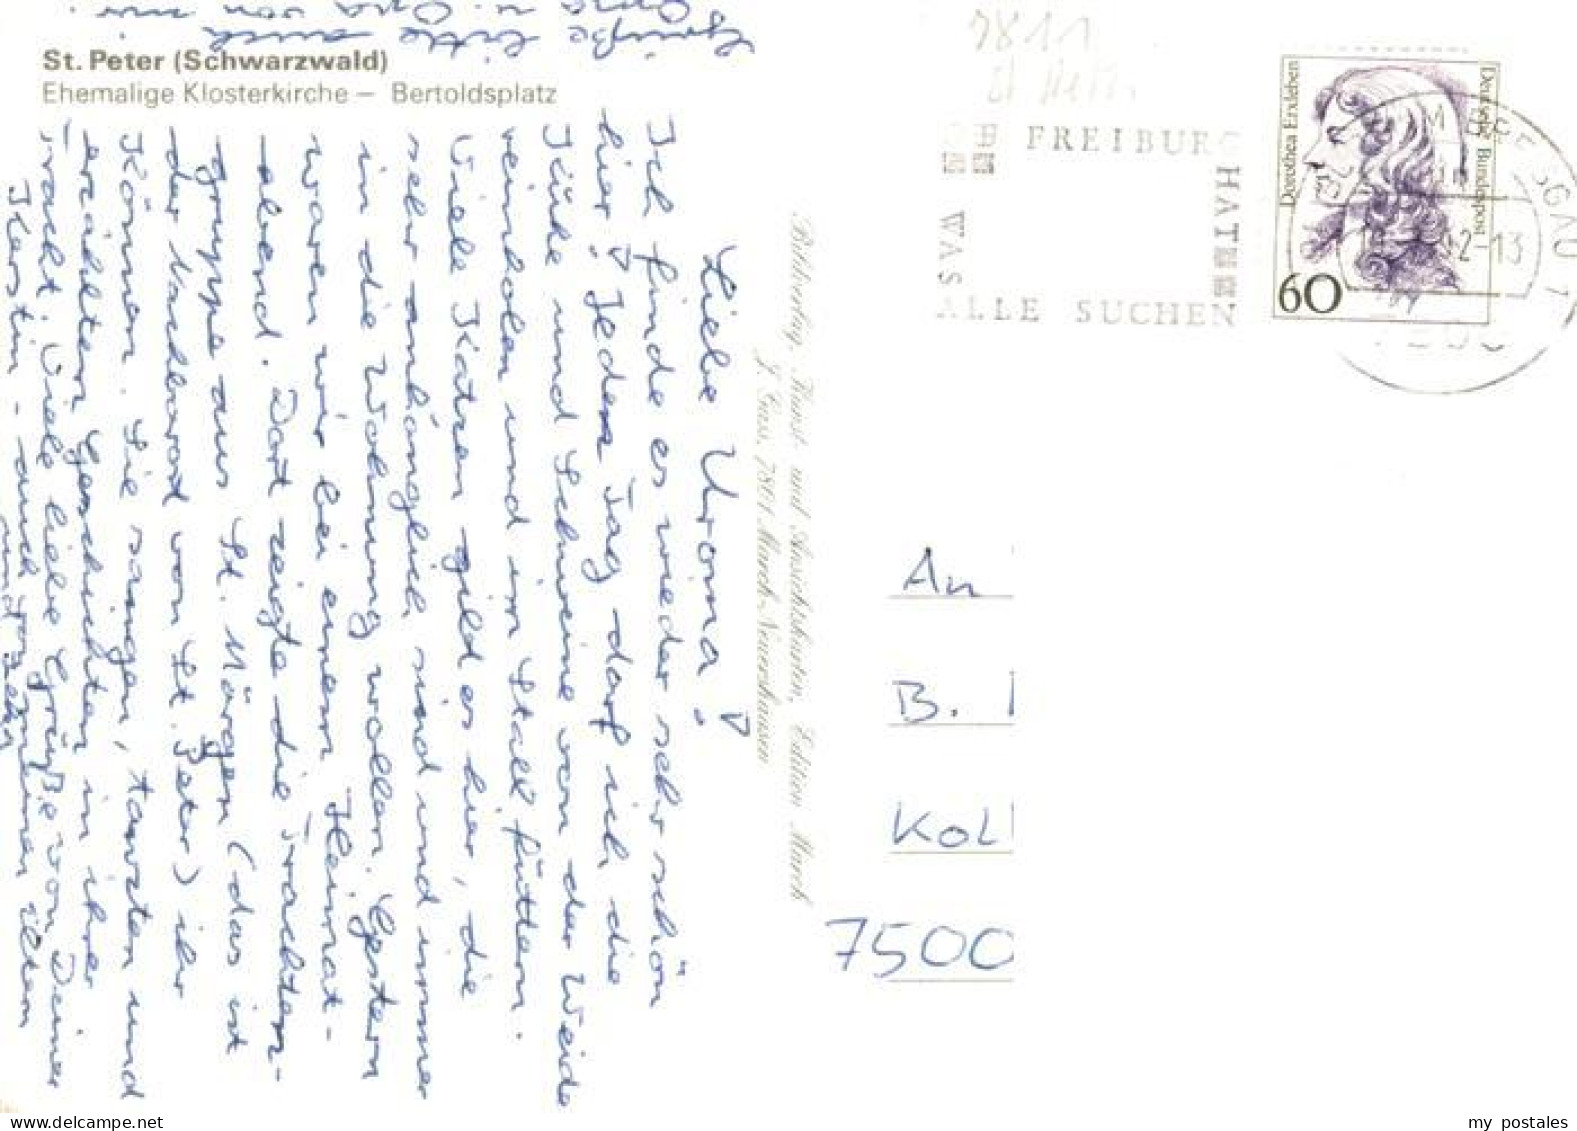 St. Peter (Schwarzwald)
Ehemalige Klosterkirche – Bertoldsplatz
Liebe Uroma!
Ich finde es wieder sehr schön
hier! Jeden Tag darf ich die
Kühe und Schweine von der Weide
reinholen und im Stall füttern.
Viele Katzen gibt es hier, die
sehr anhänglich sind und immer
in die Wohnung wollen. Gestern
waren wir bei einem Heimat-
abend. Dort zeigte die Trachten-
gruppe aus St. Märgen (das ist
der Nachbarort von St. Peter) ihr
Können. Sie sangen, tanzten und
erzählten Geschichten in ihrer
Tracht. Viele liebe Grüße von Deiner
Kerstin - auch von meinen Eltern
und
Grüße bitte auch
Oma u. Opa von mir.
Bildverlag, Kunst- und Ansichtskarten, Edition March
J. Gass, 7801 March-Neuershausen
7811
St. Peter
FREIBURG
HAT
WAS
ALLE SUCHEN
Dorothea Erxleben
Deutsche Bundespost
60
2-13
An
B.
Kol
7500